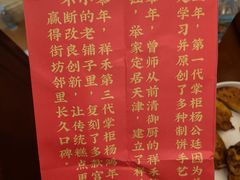 年，第一代掌柜杨公廷因为
学习，并原创了多种制饼手艺
年，曾师从前清御厨的祥禾
，举家定居天津，建立了祥
年，祥禾第二代掌柜杨鸿年
小的老铺子里，复刻了多款宫
不断改良创新，让传统糕点更
赢得街坊邻里，长久口碑。